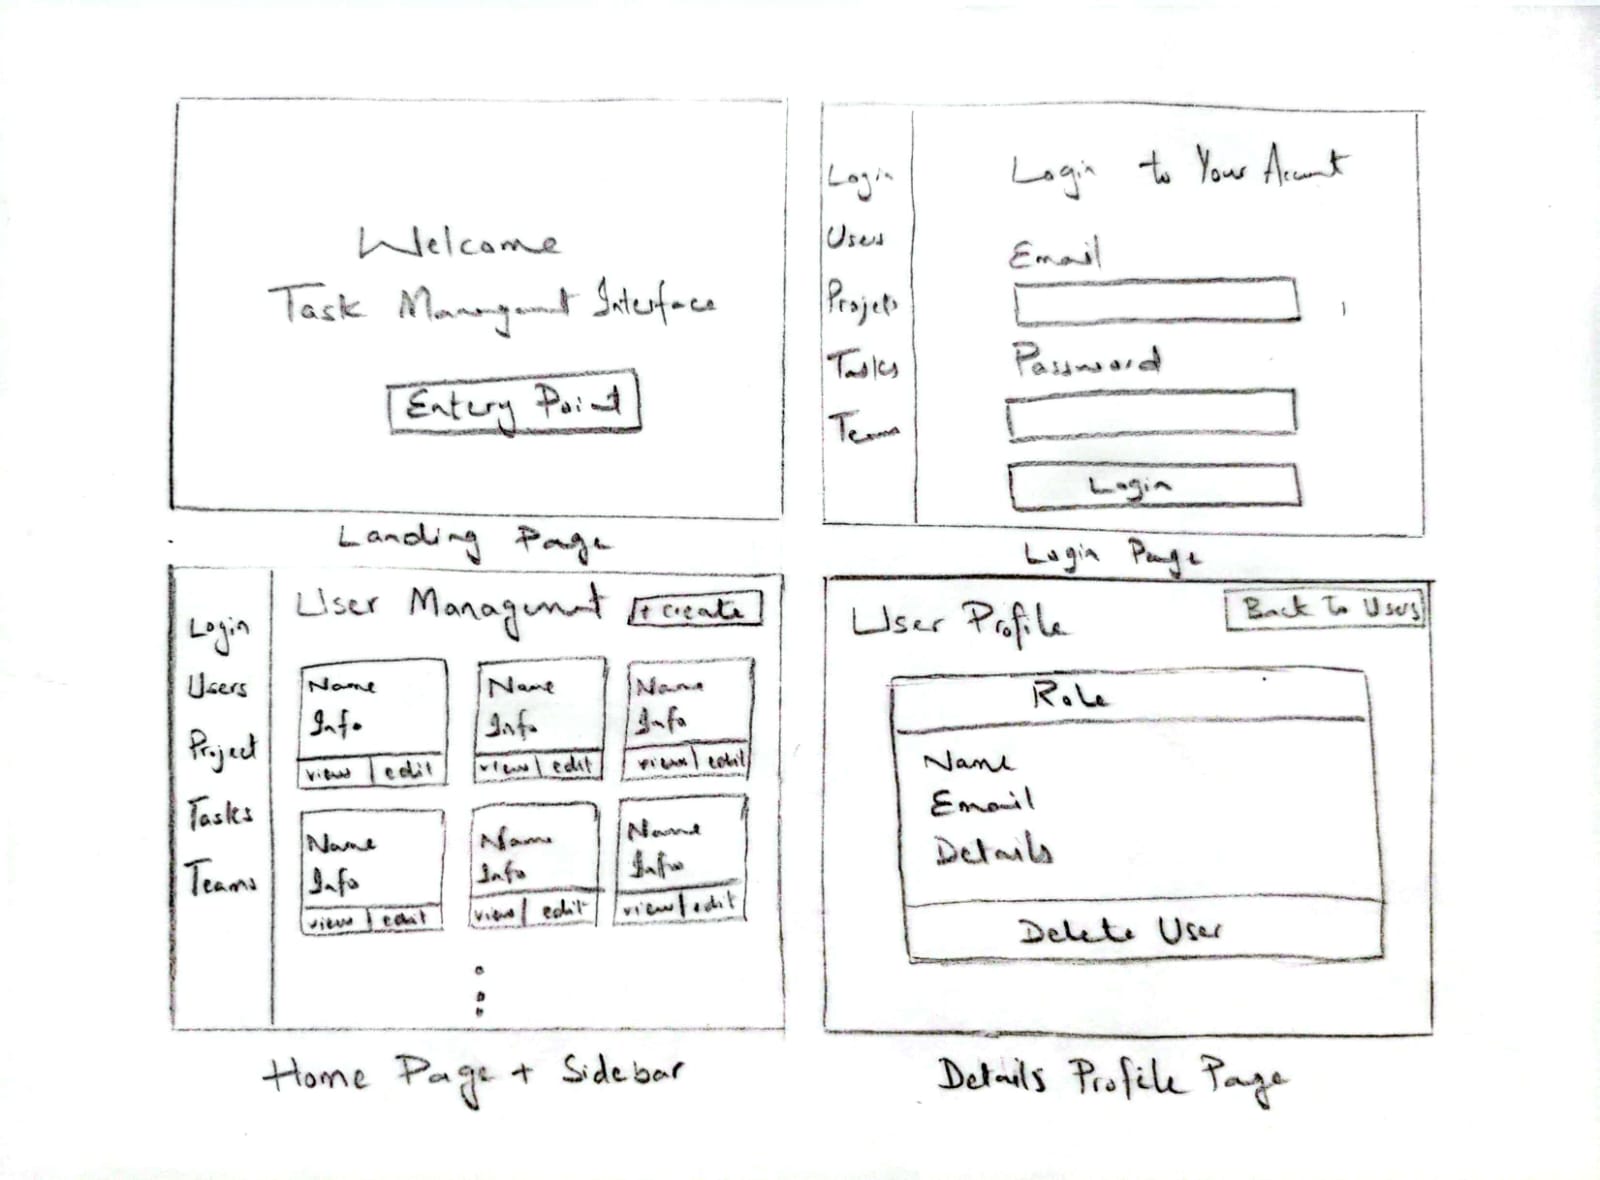 Welcome
Task Management Interface
Entery Point
Landing Page
Login
Users
Projects
Tasks
Teams
Login to Your Account
Email
Password
Login
Login Page
Login
Users
Project
Tasks
Teams
User Management
+ create
Name
Info
view | edit
Name
Info
view | edit
Name
Info
view | edit
Name
Info
view | edit
Name
Info
view | edit
Name
Info
view | edit
Home Page + Sidebar
User Profile
Back To Users
Role
Name
Email
Details
Delete User
Details Profile Page